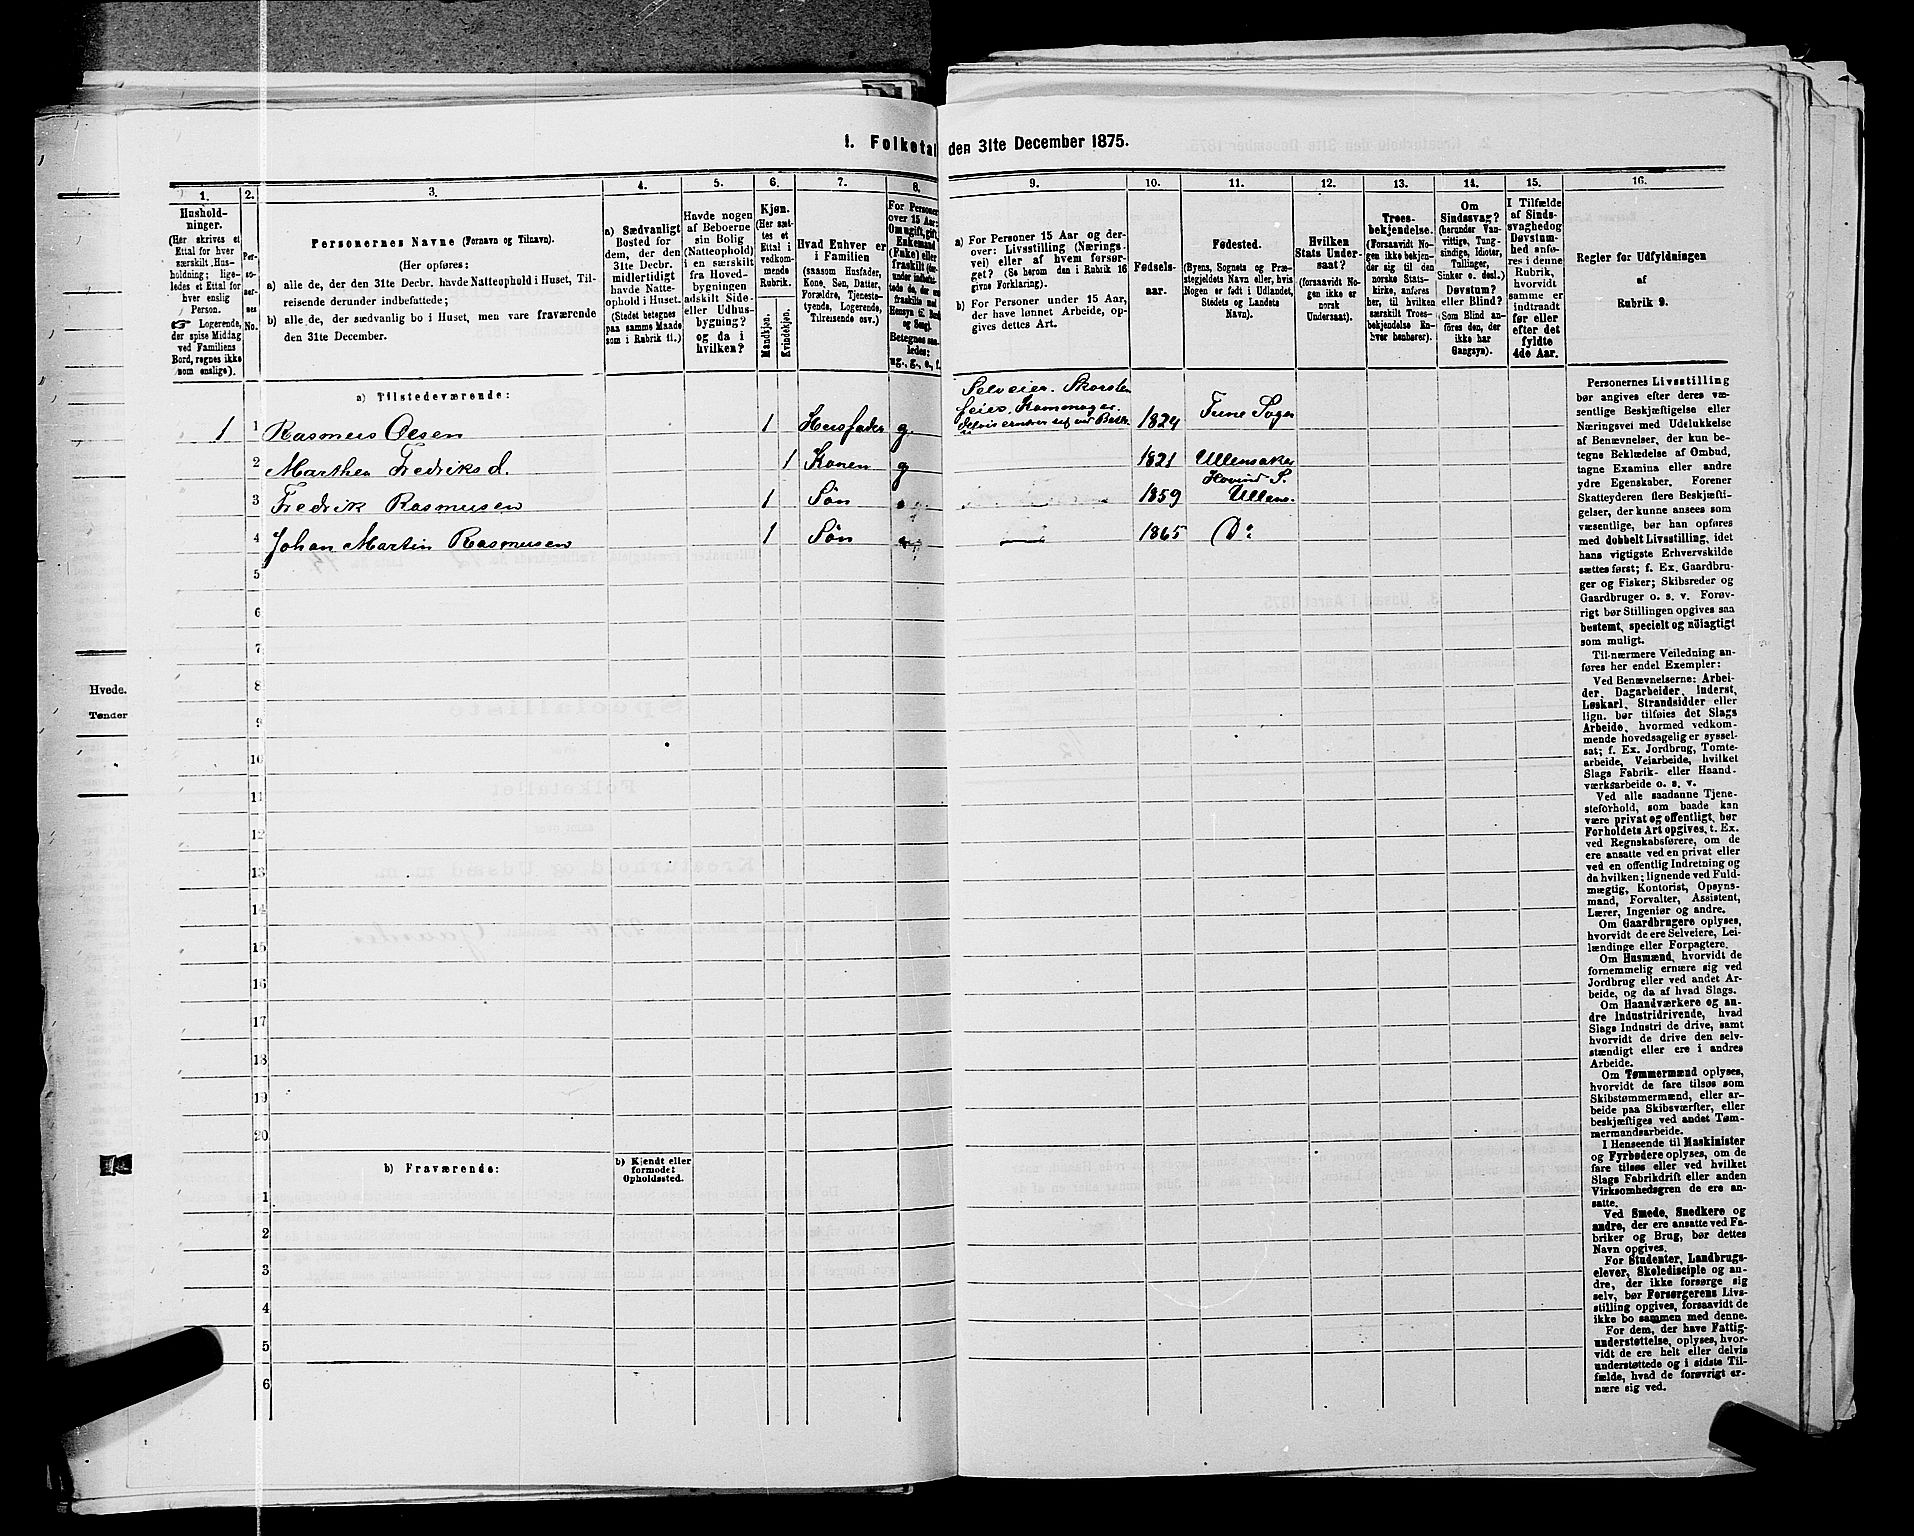 1. Folketal den 31te December 1875.
1.
2.
3.
4.
5.
6.
7.
8.
9.
10.
11.
12.
13.
14.
15.
16.
Hushold-
ninger.
(Her skrives et
Ettal for hver
særskilt Hus-
holdning; lige-
ledes et Ettal for
hver enslig
Person.
☞ Logerende,
der spise Middag
ved Familiens
Bord, regnes ikke
som enslige).
Per-
so-
ner-
nes
No.
Personernes Navne (Fornavn og Tilnavn).
(Her opføres:
a) alle de, der den 31te Decbr. havde Natteophold i Huset, Til-
reisende derunder indbefattede;
b) alle de, der sædvanlig bo i Huset, men vare fraværende
den 31te December.
a) Sædvanligt
Bosted for
dem, der den
31te Decbr.
midlertidigt
havde Natte-
ophold i Huset.
(Stedet betegnes
paa samme Maade
som i Rubrik 11.)
Havde nogen
af Beboerne
sin Bolig
(Natteophold)
i en særskilt
fra Hoved-
bygningen
adskilt Side-
eller Udhus-
bygning?
og da i
hvilken?
Kjøn.
(Her sæt-
tes et
Ettal i
vedkom-
mende
Rubrik.
Mandkjøn.
Kvindekjøn.
Hvad Enhver er
i Familien
(saasom Husfader,
Kone, Søn, Datter,
Forældre, Tjeneste-
tyende, Logerende,
Tilreisende osv.)
For Personer
over 15 Aar:
Om ugift, gift,
Enkemand
(Enke) eller
fraskilt
Betegnes saa-
ledes:
ug., g., e., f.
a) For Personer 15 Aar og der-
over: Livsstilling (Nærings-
vei) eller af hvem forsør-
get? (Se herom den i Rubrik 16
givne Forklaring).
b) For Personer under 15 Aar,
der have lønnet Arbeide, op-
gives dettes Art.
Fødsels-
aar.
Fødested.
(Byens, Sognets og Præ-
stegjeldets Navn eller, hvis
Nogen er født i Udlandet,
Stedets og Landets
Navn).
Hvilken
Stats Under-
saat?
(forsaavidt No-
gen ikke er
norsk
Undersaat).
Troes-
bekjendelse.
(Forsaavidt No-
gen ikke bekjen-
der sig til den
norske Stats-
kirke, anføres
her, til hvilken
særskilt Troes-
bekjendelse En-
hver henhører).
Om
Sindssvag?
(herunder Van-
vittige, Tung-
sindige, Idioter,
Tullinger,
Sinker o. desl.)
Døvstum?
eller Blind?
(Som Blind an-
føres den, der
ikke har
Gangsyn).
I Tilfælde
af Sinds-
svaghed og
Døvstum-
hed anfø-
res i denne
Rubrik,
hvorvidt
samme er
indtraadt
før eller
efter det
fyldte
4de Aar.
Regler for Udfyldningen
af
Rubrik 9.
a) Tilstedeværende:
Selveier. Skorsten
feier.
1 1 Rasmus Olsen 1 Husfader g. 1824 Tune Sogn
2 Marthea Fredriksd. 1 Konen g 1821 Ullensaker
Hovind S.
3 Fredrik Rasmusen 1 Søn 1859 Ullens.
4 Johan Martin Rasmusen 1 Søn 1865 Do
5
6
7
8
9
10
11
12
13
14
15
16
17
18
19
20
b) Fraværende:
b) Kjendt eller
formodet
Opholdssted.
1
2
3
4
5
6
Personernes Livsstilling
bør angives efter deres væ-
sentlige Beskjæftigelse eller
Næringsvei med Udelukkelse
af Benævnelser, der kun be-
tegne Beklædelse af Ombud,
tagne Examina eller andre
ydre Egenskaber. Forener
Skatteyderen flere Beskjæfti-
gelser, der kunne ansees som
væsentlige, bør han opføres
med dobbelt Livsstilling, idet
hans vigtigste Erhvervskilde
sættes først; f. Ex. Gaardbru-
ger og Fisker; Skibsreder og
Gaardbruger o. s. v. Forøv-
rigt bør Stillingen opgives saa
bestemt, specielt og nöiagtigt
som muligt.
Til nærmere Veiledning an-
føres her endel Exempler:
Ved Benævnelserne: Arbei-
der, Dagarbeider, Inderst,
Løskarl, Strandsidder eller
lign. bør tilføies det Slags
Arbeide, hvormed vedkom-
mende hovedsagelig er syssel-
sat; f. Ex. Jordbrug, Tomte-
arbeide, Veiarbeide, hvilket
Slags Fabrik- eller Haand-
værksarbeide o. s. v.
Ved alle saadanne Tjene-
steforhold, som baade kan
være privat og offentligt, bør
Forholdets Art opgives, t. Ex.
ved Regnskabsførere, om de
ere ansatte ved en privat eller
ved en offentlig Indretning og
da hvilken; lignende ved Fuld-
mægtig, Kontorist, Opsyns-
mand, Forvalter, Assistent,
Lærer, Ingeniør og andre.
Om Gaardbrugere oplyses,
hvorvidt de ere Selveiere, Lei-
lændinge eller Forpagtere.
Om Husmænd, hvorvidt de
fornemmelig ernære sig ved
Jordbrug eller ved andet Ar-
beide, og da af hvad Slags.
Om Haandværkere og an-
dre Industridrivende, hvad
Slags Industri de drive, samt
hvorvidt de drive den selv-
stændigt eller ere i andres
Arbeide.
Om Tømmermænd oplyses,
hvorvidt de fare tilsøs som
Skibstømmermænd, eller ar-
beide paa Skibsværfter, eller
beskjæftiges ved andet Tøm-
mermandsarbeide.
I Henseende til Maskinister
og Fyrbødere oplyses, om de
fare tilsøs eller ved hvilket
Slags Fabrikdrift eller anden
Virksomhedsgren de ere an-
satte.
Ved Smede, Snedkere og
andre, der ere ansatte ved Fa-
briker og Brug, bør dettes
Navn opgives.
For Studenter, Landbrugs-
elever, Skoledisciple og an-
dre, der ikke forsørge sig
selv, bør Forsørgerens Livs-
stilling opgives, forsaavidt de
ikke bo sammen med denne.
For dem, der have Fattig-
understøttelse, oplyses, hvor-
vidt de ere helt eller delvis
understøttede og i sidste Til-
fælde, hvad de forøvrigt er-
nære sig ved.
Hvede.
Tønder